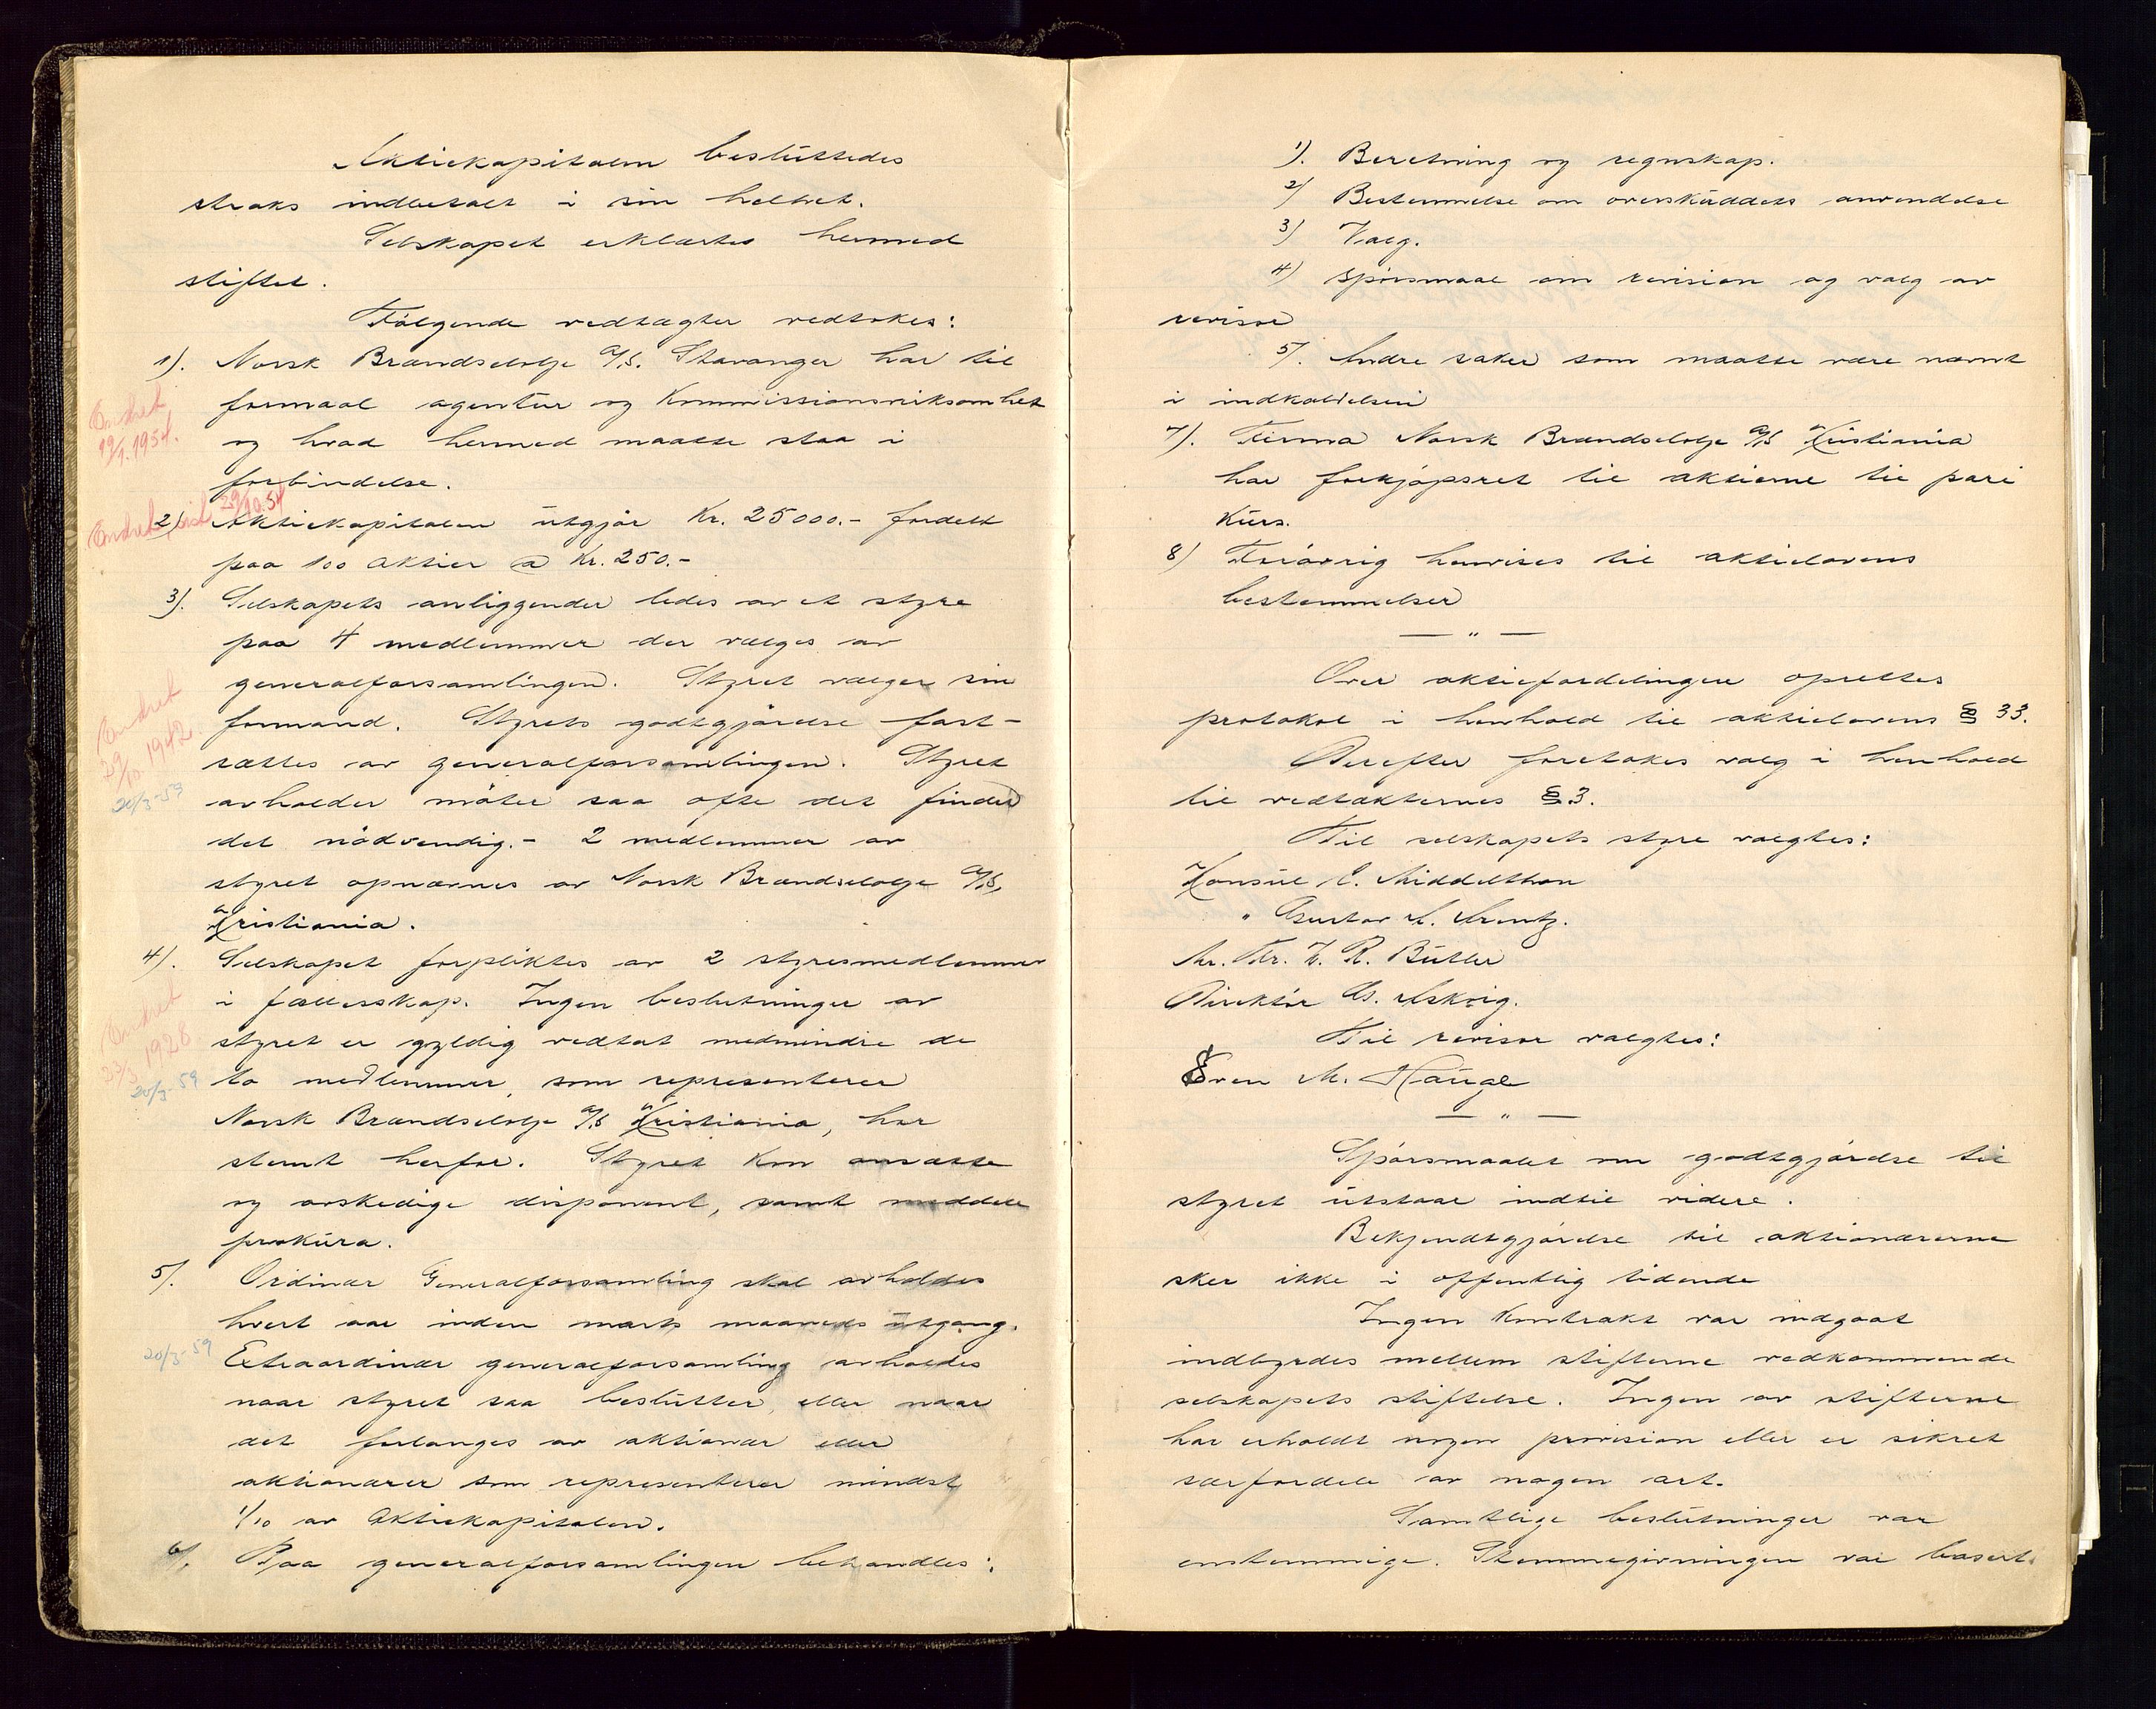 Aktiekapitalen besluttedes
straks indbetalt i sin helhet.
Selskapet erklærtes hermed
stiftet.
Følgende vedtægter vedtokes:
1). Norsk Brændselolje A/S. Stavanger har til
formaal agentur og Kommissionsvirksomhet
Endret
19/1.1954.
og hvad hermed maatte staa i
forbindelse.
Endret, 29/10.54
2) Aktiekapitalen utgjør Kr. 25000.- fordelt
paa 100 aktier a Kr. 250.-
3). Selskapets anliggender ledes av et styre
paa 4 medlemmer der vælges av
generalforsamlingen. Styret vælger sin
Endret
29/10. 1942
20/3-59
formand. Styrets godtgjørelse fast-
sættes av generalforsamlingen. Styret
avholder møter saa ofte det finder
det nødvendig.- 2 medlemmer av
styret opnævnes av Norsk Brændselolje A/S,
Kristiania.
4). Selskapet forpliktes av 2 styresmedlemmer
i fællesskap. Ingen beslutninger av
Endret
23/3 1928
20/3-59
styret er gyldig vedtat medmindre de
to medlemmer, som representerer
Norsk Brændselolje A/S Kristiania, har
stemt herfor. Styret kan ansætte
og avskedige disponent, samt meddele
prokura.
5). Ordinær Generalforsamling skal avholdes
hvert aar inden marts maaneds utgang.
20/3-59
Extraordinær generalforsamling avholdes
naar styret saa beslutter, eller naar
det forlanges av aktionær eller
aktionærer som representerer mindst
1/10 av Aktiekapitalen.
6). Paa generalforsamlingen behandles:
1). Beretning og regnskap.
2) Bestemmelse om overskuddets anvendelse
3) Valg.
4) Spørsmaal om revision og valg av
revisor
5). Andre saker som maatte være nævnt
i indkaldelsen
7). Firma Norsk Brændselolje A/S Kristiania
har forkjøpsret til aktierne til pari
Kurs.
8) Forøvrig henvises til aktielovens
bestemmelser
— " —
Over aktiefordelingen oprettes
protokol i henhold til aktielovens § 33.
Derefter foretokes valg i henhold
til vedtækternes § 3.
Til selskapets styre valgtes:
Konsul C. Middelthon
" Gustav A. Arentz.
Hr. Fr. W. R. Butler
Direktør G. Askvig.
Til revisor valgtes:
Sven M. Hauge
— " —
Spørsmaalet om godtgjørelse til
styret utstaar indtil videre.
Bekjendtgjørelse til aktionærerne
sker ikke i offentlig tidende
Ingen Kontrakt var indgaat
indbyrdes mellem stifterne vedkommende
selskapets stiftelse. Ingen av stifterne
har erholdt nogen provision eller er sikret
særfordele av nogen art.
Samtlige beslutninger var
enstemmige. Stemmegivningen var basert